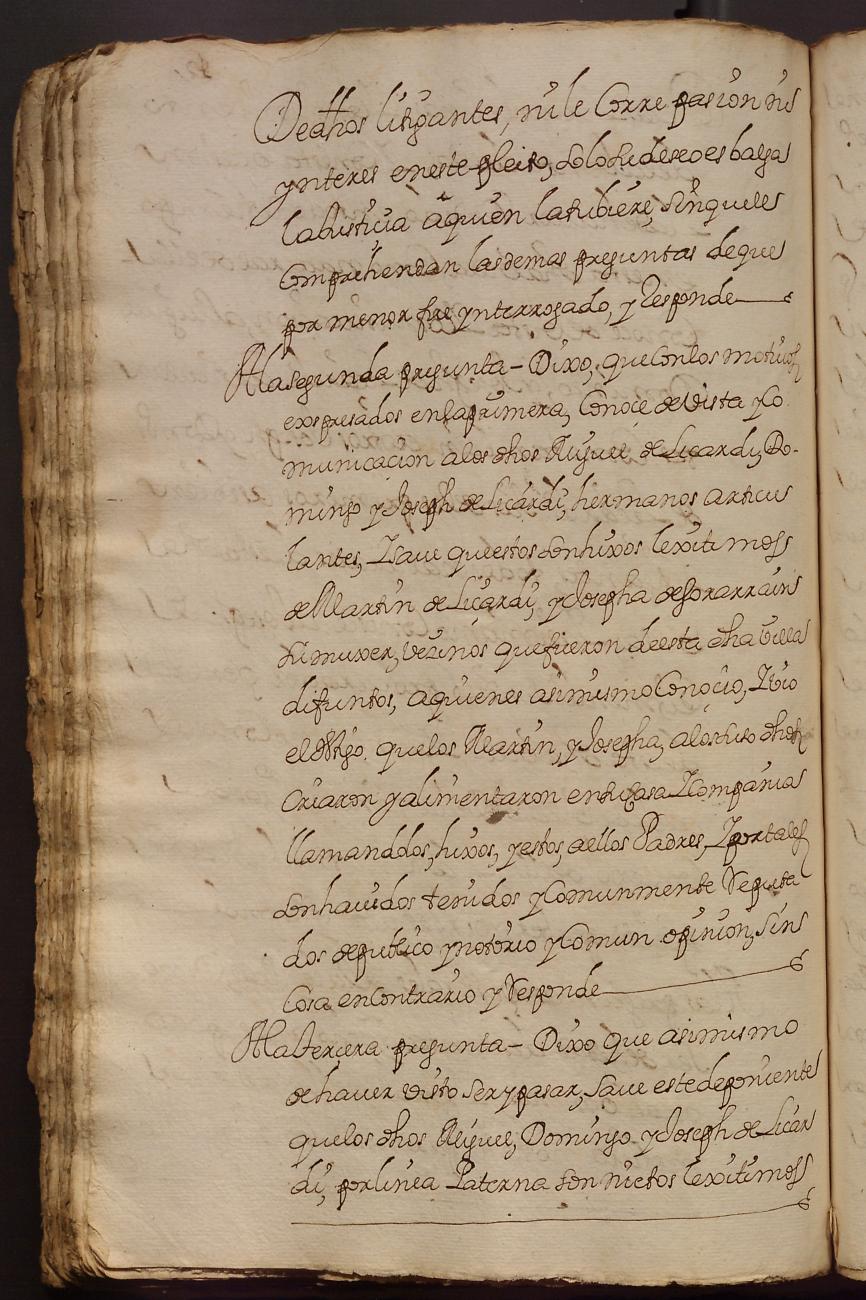 De dhos litigantes, ni le Corre pasion ni
ynteres eneste pleito, solo su deseo es balga
la Justicia à quien la tubiere, sin que les
Comprehendan las demas preguntas de que
por menor fue ynterrogado, y Responde
A la segunda pregunta - Dixo, que Con los motivos
expresados en la primera, Conoce de vista y Co
municacion a los dhos Miguel de Licardi, Do-
mingo y Joseph de Licardi, hermanos articu
lantes, Y save que estos son hixos lexitimos
de Martin de Liçardi, y Josepha de Sorarrain
su muxer, vezinos que fueron de esta dha Villa
difuntos, a quienes asimismo Conocio, Y vio
el testigo. que los Martin, y Josepha, a los suso dhos
Criaron y alimentaron en su Casa Y Compañia
llamandolos, hixos, y estos, a ellos Padres, Y por tales
son havidos tenidos y Comunmente Reputa
dos de publico y notorio y Comun opinion, sin
Cosa en Contrario y Responde
A la tercera pregunta - Dixo que asimismo
de haver visto ser y pasar, save este deponiente
que los dhos Miguel, Domingo y Joseph de Licar
di, por linea Paterna son nietos lexitimos